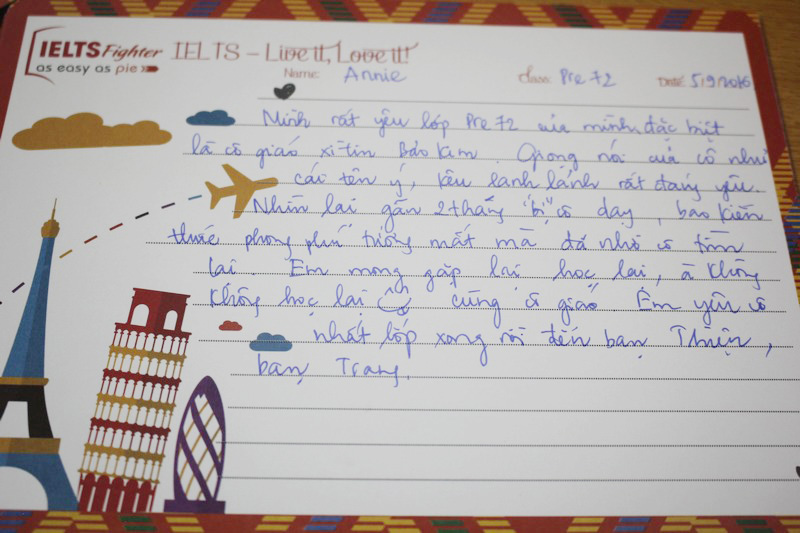 IELTS Fighter
as easy as pie
IELTS – Live it, Love it!
Name: Annie
Class: Pre 72
Date: 5/9/2016
Mình rất yêu lớp Pre 72 của mình, đặc biệt
là cô giáo xì-tin Bảo Kim. Giọng nói của cô như
cái tên ý, kêu lanh lảnh rất đáng yêu.
Nhìn lại gần 2 tháng "bị" cô dạy, bao kiến
thức phong phú tưởng mất mà đã nhờ cô tìm
lại. Em mong gặp lại học lại, à không
không học lại cùng cô giáo. Em yêu cô
nhất lớp xong rồi đến bạn Thiện,
bạn Trang.